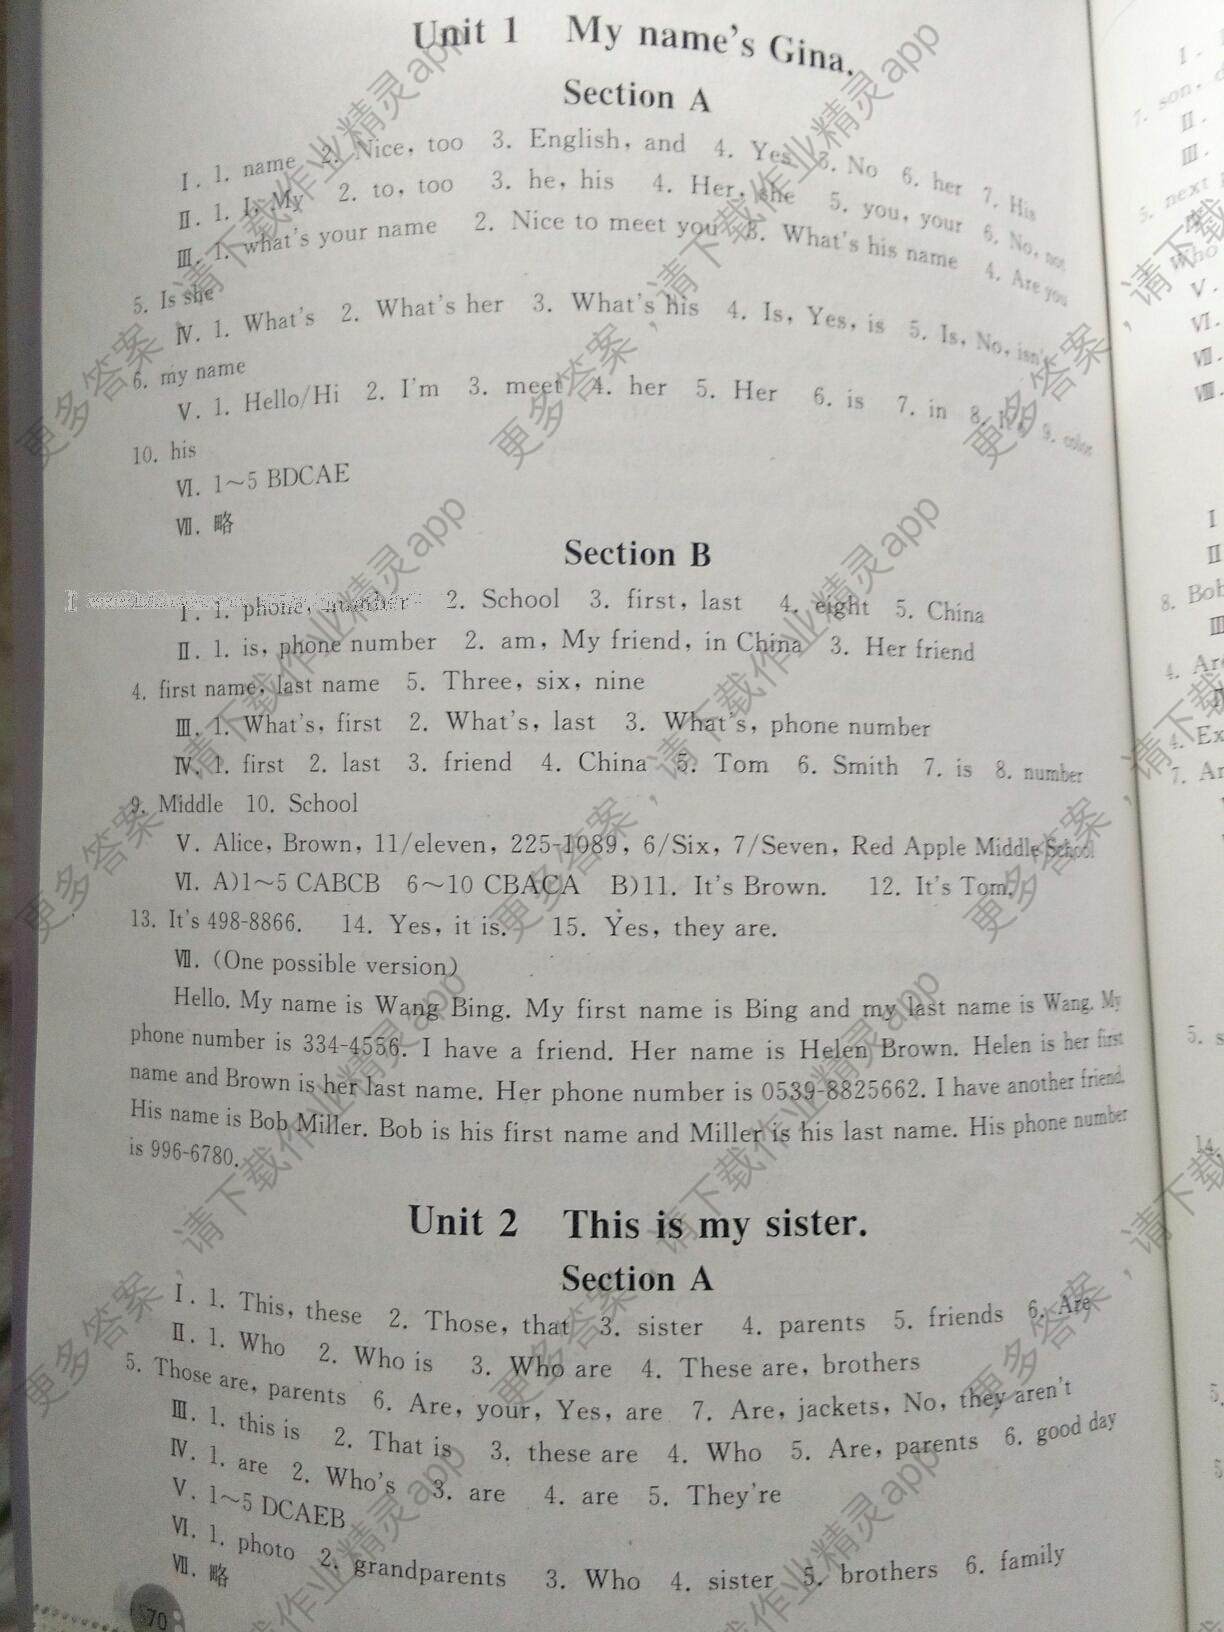 Unit 1 My name's Gina.
Section A
Ⅰ. 1. name 2. Nice, too 3. English, and 4. Yes 5. No 6. her 7. His
Ⅱ. 1. I, My 2. to, too 3. he, his 4. Her, she 5. you, your 6. No, not
Ⅲ. 1. what's your name 2. Nice to meet you 3. What's his name 4. Are you
5. Is she
Ⅳ. 1. What's 2. What's her 3. What's his 4. Is, Yes, is 5. Is, No, isn't
6. my name
Ⅴ. 1. Hello/Hi 2. I'm 3. meet 4. her 5. Her 6. is 7. in 8. It's 9. color
10. his
Ⅵ. 1～5 BDCAE
Ⅶ. 略
Section B
Ⅰ. 1. phone, number 2. School 3. first, last 4. eight 5. China
Ⅱ. 1. is, phone number 2. am, My friend, in China 3. Her friend
4. first name, last name 5. Three, six, nine
Ⅲ. 1. What's, first 2. What's, last 3. What's, phone number
Ⅳ. 1. first 2. last 3. friend 4. China 5. Tom 6. Smith 7. is 8. number
9. Middle 10. School
Ⅴ. Alice, Brown, 11/eleven, 225-1089, 6/Six, 7/Seven, Red Apple Middle School
Ⅵ. A)1～5 CABCB 6～10 CBACA B)11. It's Brown. 12. It's Tom.
13. It's 498-8866. 14. Yes, it is. 15. Yes, they are.
Ⅶ. (One possible version)
Hello. My name is Wang Bing. My first name is Bing and my last name is Wang. My
phone number is 334-4556. I have a friend. Her name is Helen Brown. Helen is her first
name and Brown is her last name. Her phone number is 0539-8825662. I have another friend.
His name is Bob Miller. Bob is his first name and Miller is his last name. His phone number
is 996-6780.
Unit 2 This is my sister.
Section A
Ⅰ. 1. This, these 2. Those, that 3. sister 4. parents 5. friends 6. Are
Ⅱ. 1. Who 2. Who is 3. Who are 4. These are, brothers
5. Those are, parents 6. Are, your, Yes, are 7. Are, jackets, No, they aren't
Ⅲ. 1. this is 2. That is 3. these are 4. Who 5. Are, parents 6. good day
Ⅳ. 1. are 2. Who's 3. are 4. are 5. They're
Ⅴ. 1～5 DCAEB
Ⅵ. 1. photo 2. grandparents 3. Who 4. sister 5. brothers 6. family
Ⅶ. 略
70
更多答案，请下载作业精灵app